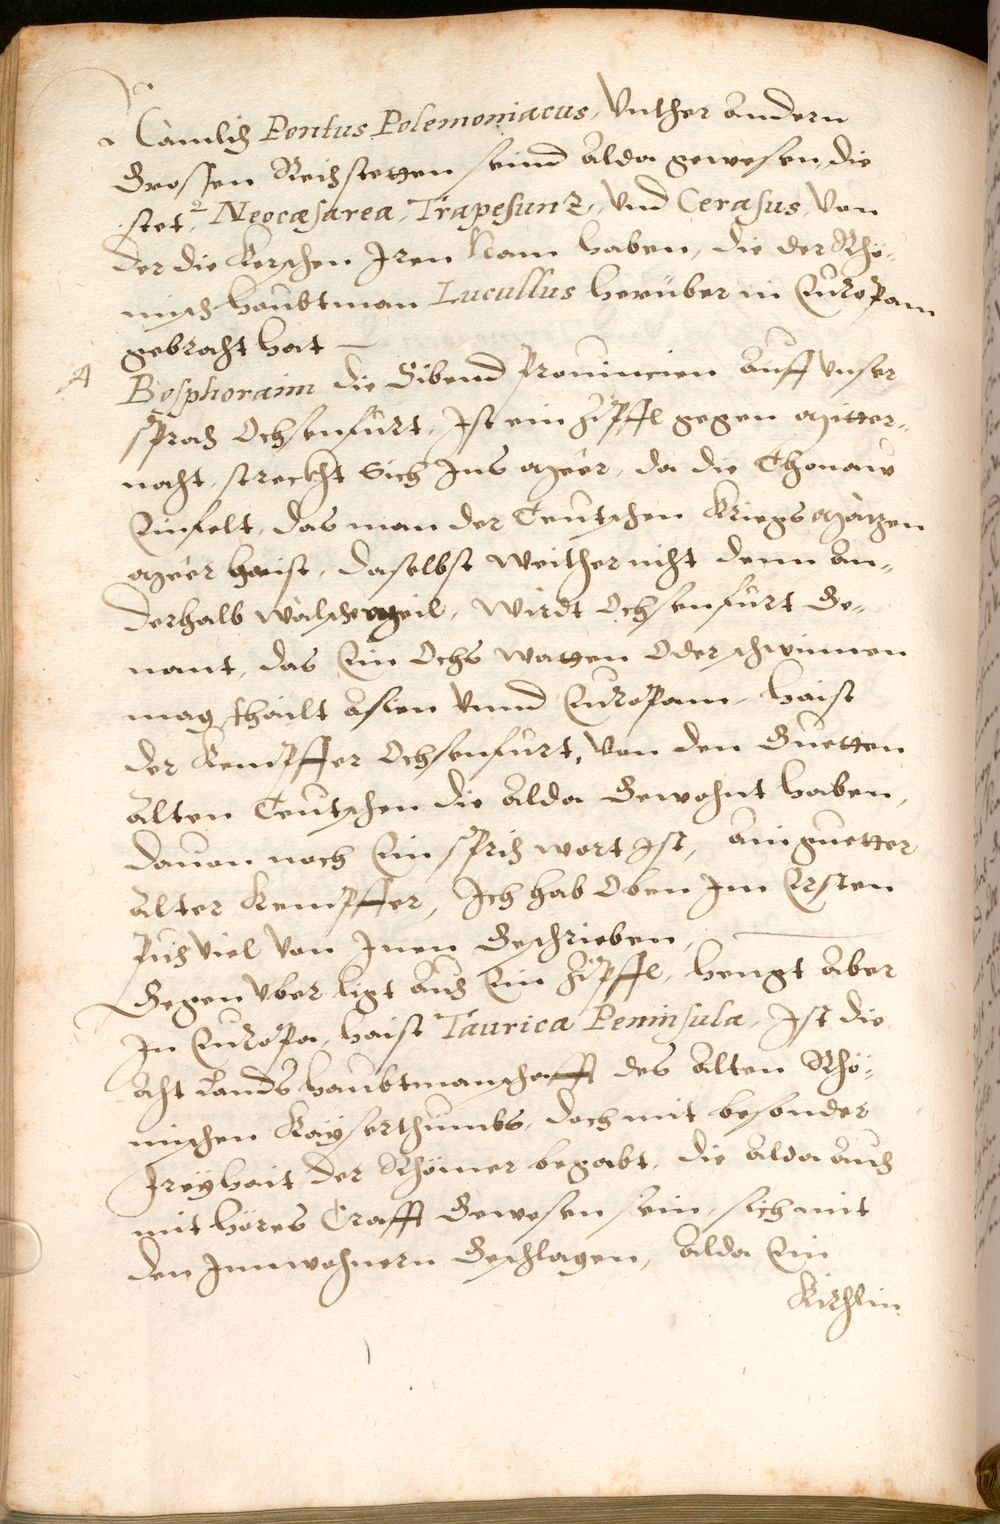 Nämlich Pontus Polemoniacus, Vnther andern
Grossen Reichstetten seind alda gewesen, die
stet, Neocæsarea, Trapesunz, Vnd Cerasus, Von
der die Kerschen Jren Nam haben, die der Rhö-
misch haubtman Lucullus herüber in Europam
gebracht hat —
A
Bosphoraim die Sibend Prouincien auff vnser
sprach Ochsenfúrt, Ist ein Zipffl gegen Mitter-
nacht, streckht Sich Ins Meer, da die Thonaw
Einfelt, das man der Teutschen Kriegs Mätzen
Meer haist, daselbst weither nicht dem an-
derhalb wälsche Meil, Wirdt Ochsenfúrt Ge-
nant, das Ein Ochs watten Oder schwimen
mag, thailt Asien Vnnd Europam, haist
der Kempffer Ochsenfúrt, Von den Guetten
Alten Teutschen die alda Gewohnt haben,
dauon noch Ein sprich wort Ist, ain guetter
alter Kempffer, Ich hab Oben Im Ersten
Puch viel Von Jnen Geschrieben,
Gegen vber ligt auch Ein Zipffl, hengt aber
In Europa, haist Taurica Peninsula, Ist die
acht Landshaubtmanschafft des alten Rhö-
mischen Kayserthumbs, doch mit besonder
Freyhait der Rhömer begabt, die alda auch
mit höres Crafft Gewesen sein, sich mit
den Innwohnern Geschlagen, alda Ein
Kirchlin